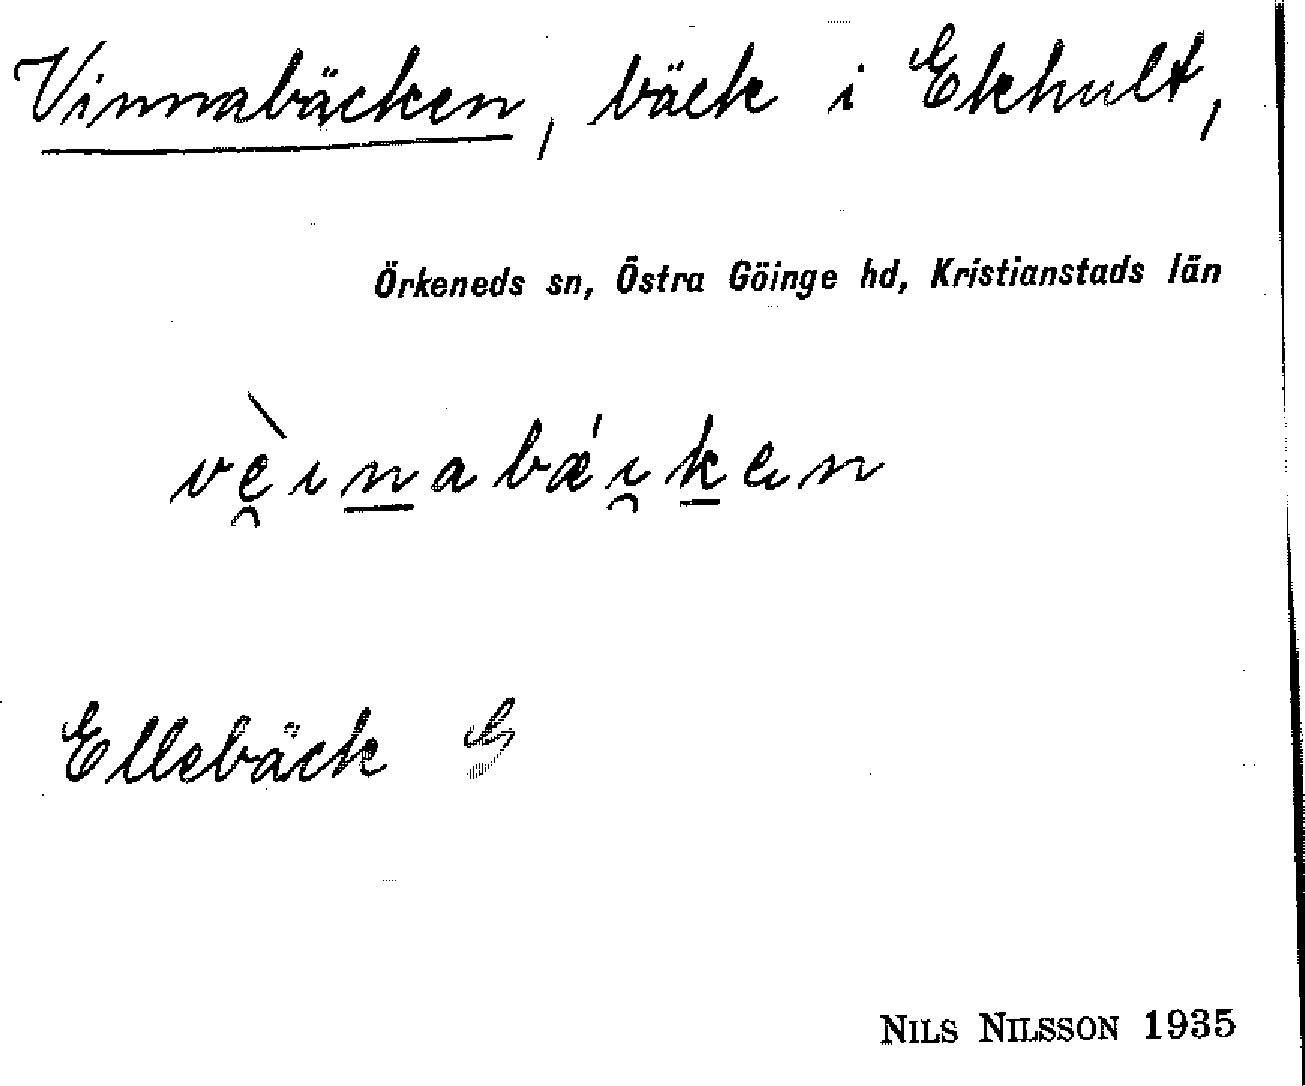 Vinnabäcken, bäck i Ekhult,
Örkeneds sn, Östra Göinge hd, Kristianstads län
vè̯ın̲abǽı̯k̲en
Ellebäck G
NILS NILSSON 1935